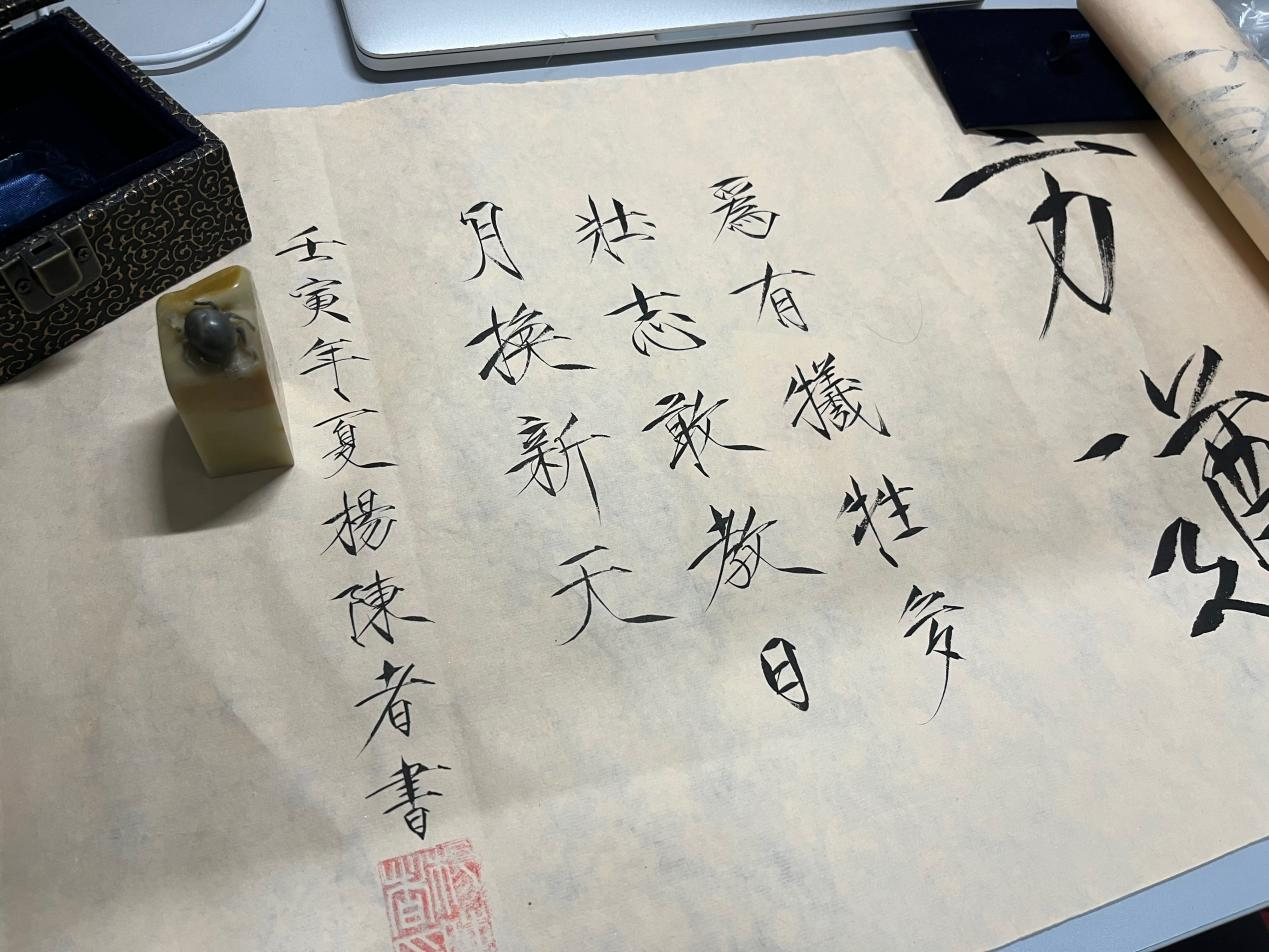 方遒
為有犧牲多
壯志敢教日
月換新天
壬寅年夏楊陳者書